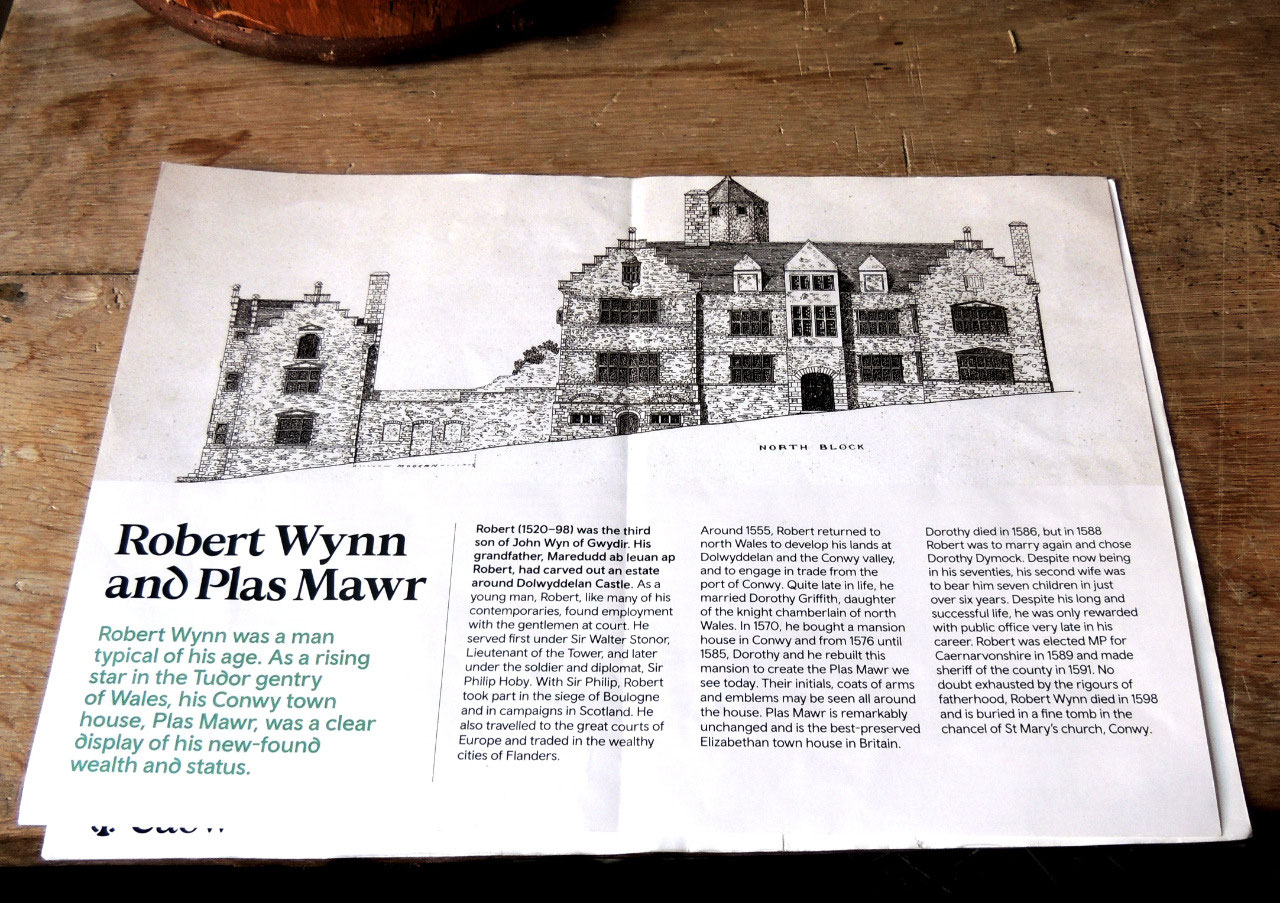 NORTH BLOCK.
MODERN
Robert Wynn
and Plas Mawr
Robert Wynn was a man
typical of his age. As a rising
star in the Tudor gentry
of Wales, his Conwy town
house, Plas Mawr, was a clear
display of his new-found
wealth and status.
Robert (1520–98) was the third
son of John Wyn of Gwydir. His
grandfather, Maredudd ab Ieuan ap
Robert, had carved out an estate
around Dolwyddelan Castle. As a
young man, Robert, like many of his
contemporaries, found employment
with the gentlemen at court. He
served first under Sir Walter Stonor,
Lieutenant of the Tower, and later
under the soldier and diplomat, Sir
Philip Hoby. With Sir Philip, Robert
took part in the siege of Boulogne
and in campaigns in Scotland. He
also travelled to the great courts of
Europe and traded in the wealthy
cities of Flanders.
Around 1555, Robert returned to
north Wales to develop his lands at
Dolwyddelan and the Conwy valley,
and to engage in trade from the
port of Conwy. Quite late in life, he
married Dorothy Griffith, daughter
of the knight chamberlain of north
Wales. In 1570, he bought a mansion
house in Conwy and from 1576 until
1585, Dorothy and he rebuilt this
mansion to create the Plas Mawr we
see today. Their initials, coats of arms
and emblems may be seen all around
the house. Plas Mawr is remarkably
unchanged and is the best-preserved
Elizabethan town house in Britain.
Dorothy died in 1586, but in 1588
Robert was to marry again and chose
Dorothy Dymock. Despite now being
in his seventies, his second wife was
to bear him seven children in just
over six years. Despite his long and
successful life, he was only rewarded
with public office very late in his
career. Robert was elected MP for
Caernarvonshire in 1589 and made
sheriff of the county in 1591. No
doubt exhausted by the rigours of
fatherhood, Robert Wynn died in 1598
and is buried in a fine tomb in the
chancel of St Mary's church, Conwy.